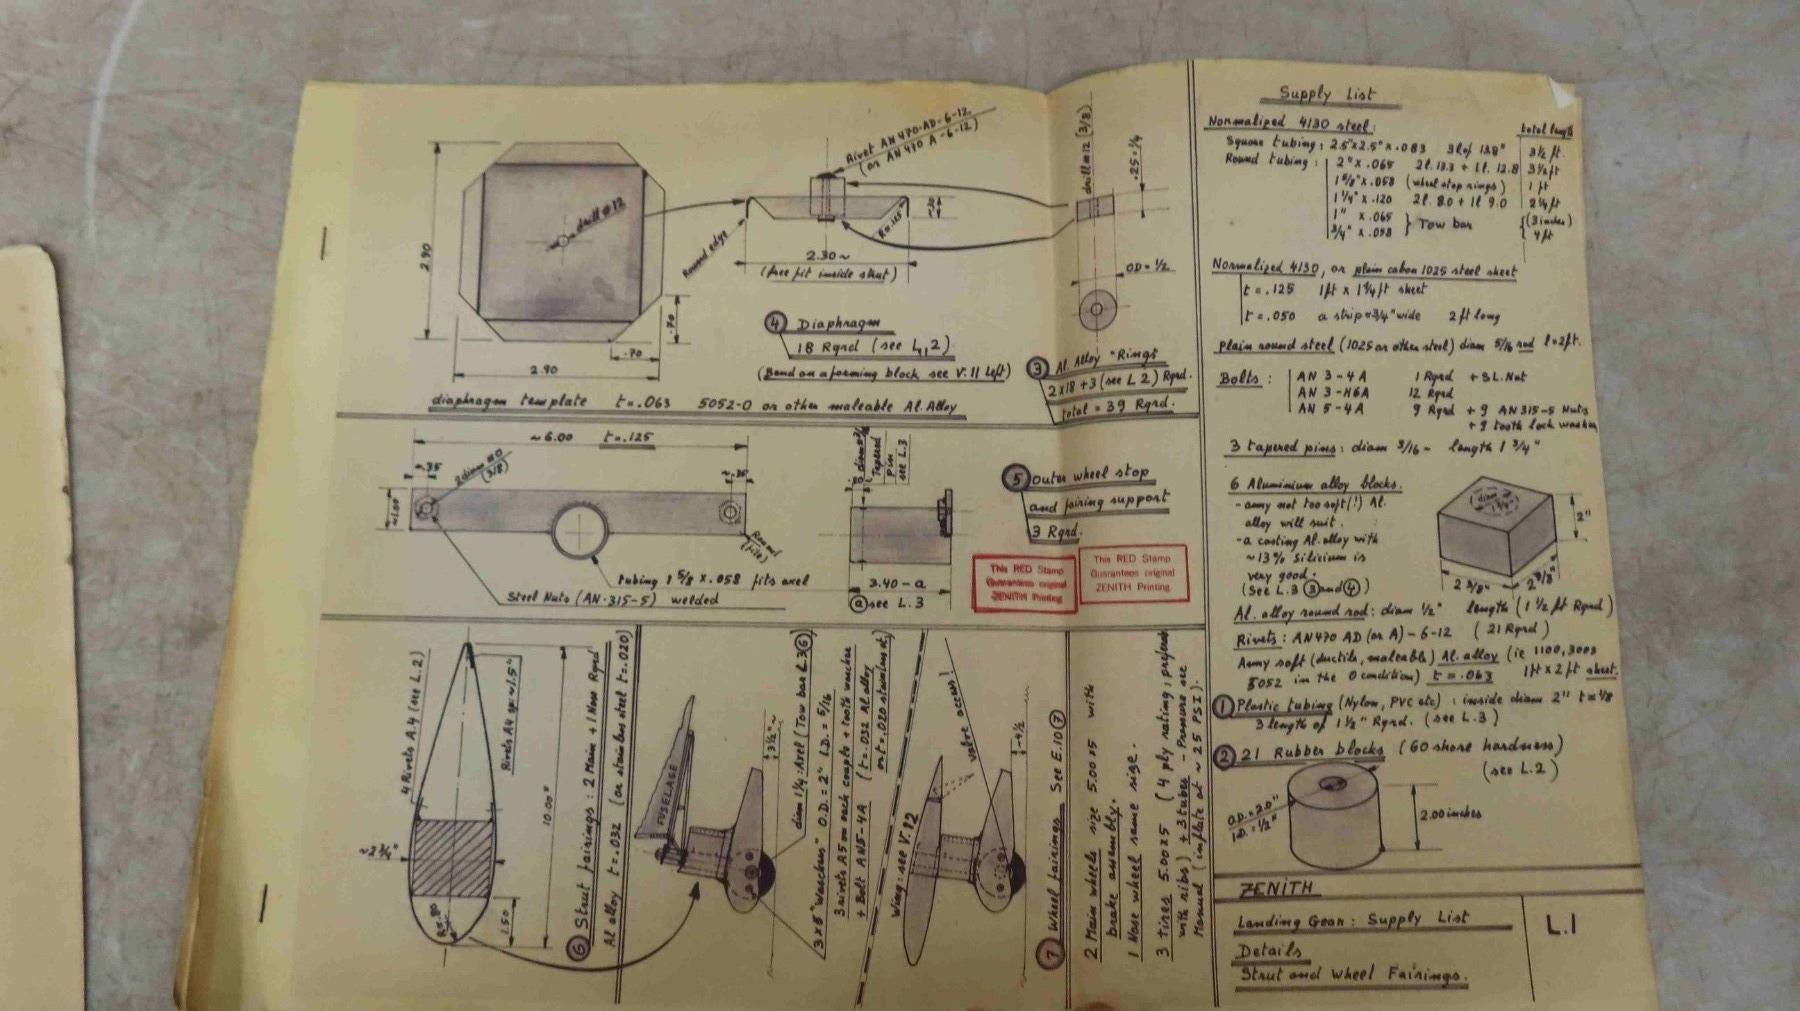 Rivet AN 470-AD-6-12
(or AN 470 A-6-12)
drill #12 (3/8)
.25=1/4
drill #12
Round edge
2.30~
(free fit inside strut)
OD=1/2
2.90
.70
.70
2.90
4 Diaphragm
18 Rqrd (see L1,2)
(Bend on a forming block see V.11 left)
3 Al. Alloy "Rings"
2x18+3 (see L 2) Rqrd.
total = 39 Rqrd.
diaphragm template t=.063 5052-0 or other maleable Al. Alloy
~6.00 t=.125
(3/8)
~1.00
Tapered
pin
see L.3
Round
tubing 1 5/8 x .058 fits axel
Steel Nuts (AN-315-5) welded
3.40-a
a see L.3
5 Outer wheel stop
and fairing support
3 Rqrd.
This RED Stamp
Guarantees original
ZENITH Printing
This RED Stamp
Guarantees original
ZENITH Printing
4 Rivets A4 (see L.2)
~2 3/4"
R=.80
1.50
10.00"
6 Strut fairings: 2 Main + 1 Nose Rqrd
Al alloy t=.032 (or stainless steel t=.020)
FUSELAGE
3 1/2"~
diam 1 1/4: Axel (Tow bar L3 6)
3 x 8 "Waschers" O.D.=2" I.D.=5/16
3 rivets A5 on each couple + tooth wascher
+ Bolt AN5-4A (t=.032 Al alloy
or t=.020 stainless st.)
Wing: see V.12
valve access!
~4 1/2
7 Wheel fairings See E.10 7
2 Main wheels size 5.00x5 with
brake assembly.
1 Nose wheel same size.
3 tires 5.00x5 (4 ply rating, prefered
with ribs) + 3 tubes - Pressure see
Manual (inflate at ~ 25 PSI).
Supply List
Normalized 4130 steel: total length
Square tubing: 2.5"x2.5"x.083 3l of 13.8" 3 1/2 ft.
Round tubing: 2" x .065 2l. 13.3 + 1l. 12.8 3 1/2 ft
1 5/8" x .058 (wheel stop rings) 1 ft
1 1/4" x .120 2l. 8.0 + 1l 9.0 2 1/4 ft
1" x .065 (3 inches)
3/4" x .058 } Tow bar 4 ft
Normalized 4130, or plain cabon 1025 steel sheet
t=.125 1ft x 1 1/4 ft sheet
t=.050 a strip ~3/4" wide 2 ft long
Plain round steel (1025 or other steel) diam 5/16 rod l=2ft.
Bolts: AN 3-4A 1 Rqrd + S L. Nut
AN 3-H6A 12 Rqrd
AN 5-4A 9 Rqrd + 9 AN 315-5 Nuts
+ 9 tooth lock washer
3 tapered pins: diam 3/16 - length 1 3/4"
6 Aluminium alloy blocks.
- any not too soft (!) Al.
alloy will suit.
- a casting Al. alloy with
~13% Silicium is
very good.
(See L.3 3 and 4)
2"
2 3/8"
2 3/8"
Al. alloy round rod: diam 1/2" length (1 1/2 ft Rqrd)
Rivets: AN470 AD (or A)-6-12 (21 Rqrd)
Any soft (ductile, maleable) Al. alloy (ie 1100, 3003
5052 in the O condition) t=.063 1ft x 2 ft sheet.
1 Plastic tubing (Nylon, PVC etc): inside diam 2" t=1/8
3 length of 1 1/2" Rqrd. (see L.3)
2 21 Rubber blocks (60 shore hardness)
(see L.2)
O.D.=2.0"
I.D.=1/2"
2.00 inches
ZENITH
Landing Gear: Supply List
Details
Strut and Wheel Fairings.
L.1